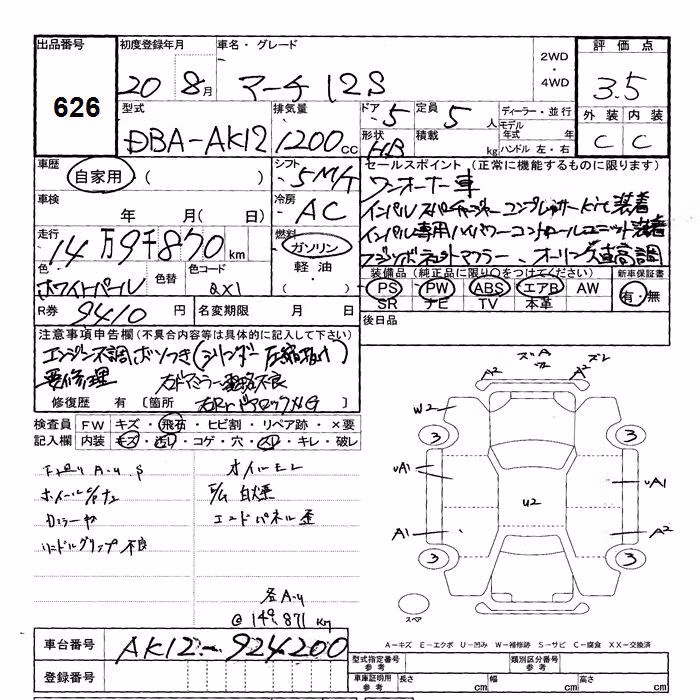 出品番号 初度登録年月 車名・グレード 2WD・4WD 評価点
626 20年 8月 マーチ 12S 3.5
型式 排気量 ドア 5 定員 5人 ディーラー・並行 外装 内装
DBA-AK12 1200cc 形状 HB 積載 kg モデル年式 年 ハンドル 左・右 C C
車歴 自家用 ( ) シフト 5M/T セールスポイント (正常に機能するものに限ります)
ワンオーナー車
車検 年 月( 日) 冷房 AC
インパル スーパーチャージャー コンプレッサーkit 装着
走行 14万9千870km 燃料 ガソリン・軽油・( )
インパル専用ハイパワーコントロールユニット装着
フジツボ マフラー、オーリンズ車高調
色 ホワイトパール 色替 色コード QX1
装備品 (純正品に限り○をつけてください) 新車保証書
PS PW ABS エアB AW 有・無
SR ナビ TV 本革
R券 9410円 名変期限 月( 日) 後日品
注意事項申告欄 (不具合内容等は具体的に記入して下さい)
エンジン不調 ボソつき(シリンダー圧縮抜け)
要修理 右ドアミラー 電格不良
修復歴 有 [箇所 右Rrドアロック
検査員 FW キズ・飛石・ヒビ割・リペア跡・×要
記入欄 内装 キズ・汚レ・コゲ・穴・スレ・キレ・破レ
オイルモレ
E/G
エンドパネル歪
ホイール
ハンドルグリップ不良
各A・U
@149,871km
A2 A2
W2
3 3
uA1 uA1
U2
A1 A2
3 3
スペア
A-キズ E-エクボ U-凹み W-補修跡 S-サビ C-腐食 XX-交換済
車台番号 AK12-924200 型式指定番号 参考 類別区分番号 参考
登録番号 車庫証明用 参考 長さ cm 幅 cm 高さ cm